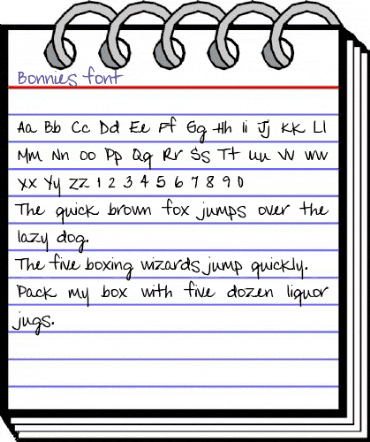 Bonnies font
Aa Bb Cc Dd Ee Ff Gg Hh Ii Jj KK Ll
Mm Nn oo Pp Qq Rr Ss Tt uu VV ww
XX Yy ZZ 1 2 3 4 5 6 7 8 9 0
The quick brown fox jumps over the
lazy dog.
The five boxing wizards jump quickly.
Pack my box with five dozen liquor
jugs.